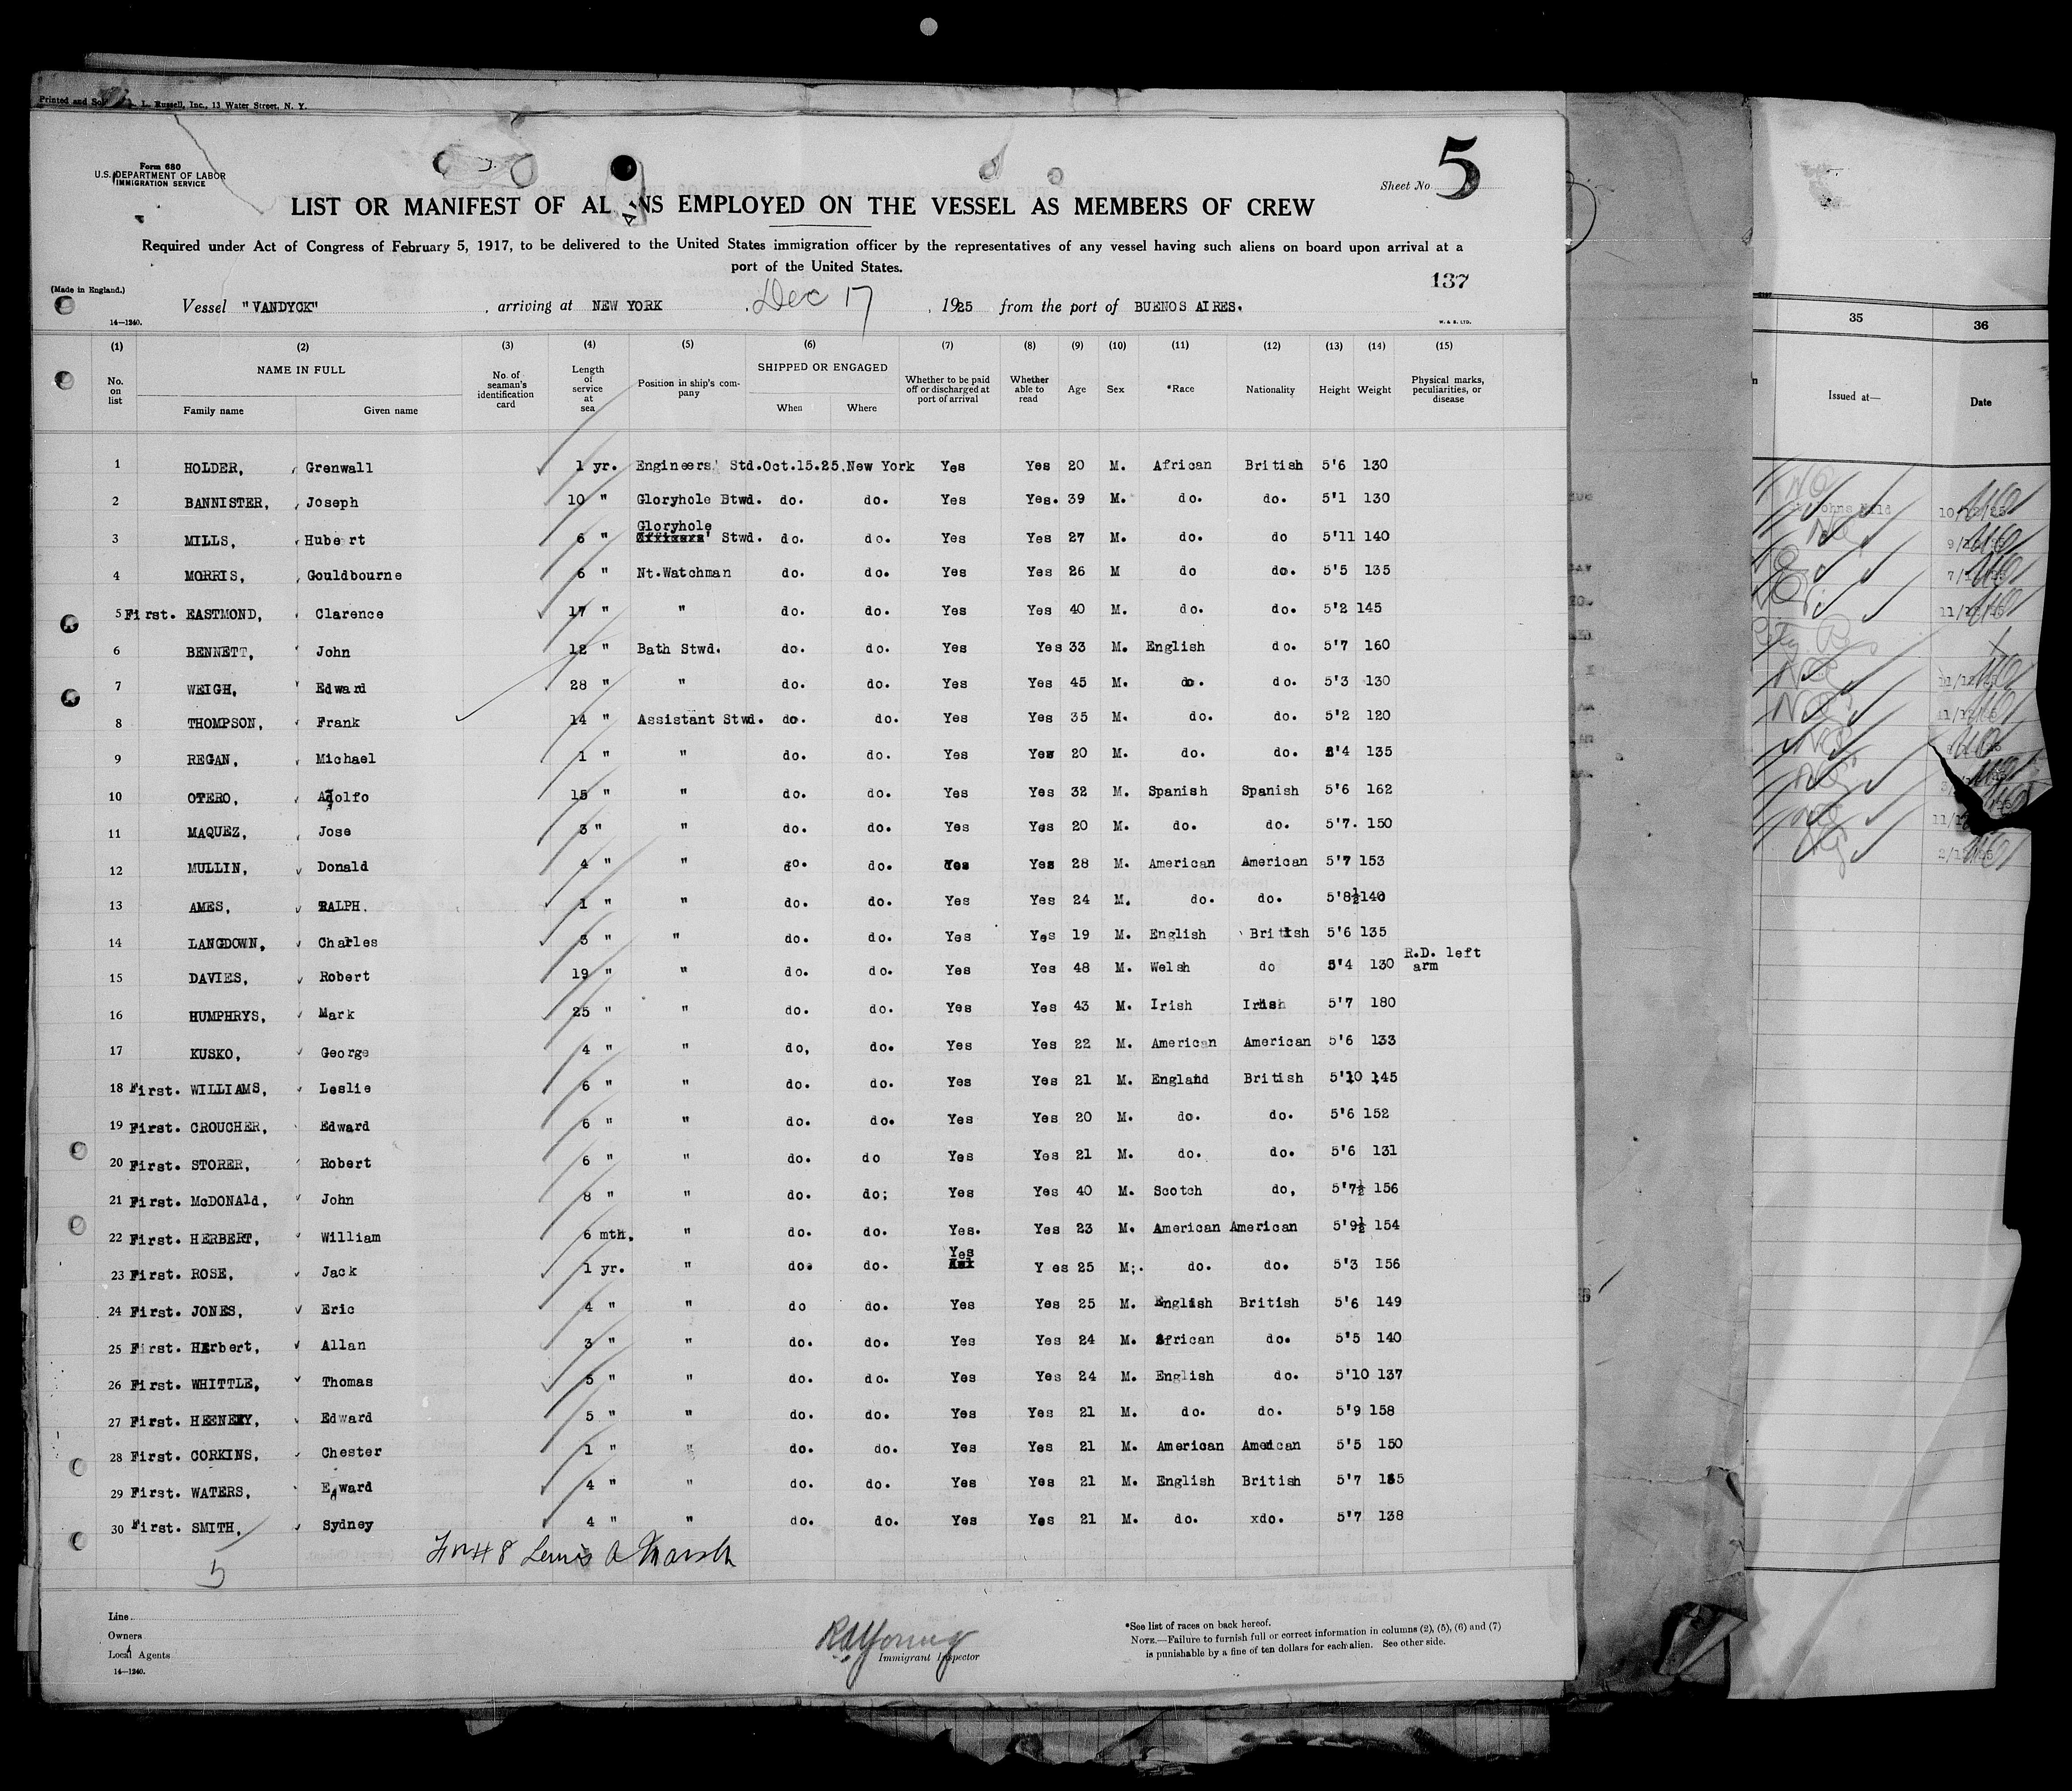 Printed and So L. Russell, Inc., 13 Water Street, N. Y.
Form 680
U.S. DEPARTMENT OF LABOR
IMMIGRATION SERVICE
Sheet No. 5
LIST OR MANIFEST OF AL NS EMPLOYED ON THE VESSEL AS MEMBERS OF CREW
Required under Act of Congress of February 5, 1917, to be delivered to the United States immigration officer by the representatives of any vessel having such aliens on board upon arrival at a
port of the United States.
137
(Made in England.)
Vessel "VANDYCK" , arriving at NEW YORK , Dec 17 , 1925 from the port of BUENOS AIRES.
14—1240.
W. & S. LTD.
(1) (2) (3) (4) (5) (6) (7) (8) (9) (10) (11) (12) (13) (14) (15)
No. on list NAME IN FULL Family name Given name No. of seaman's identification card Length of service at sea Position in ship's company SHIPPED OR ENGAGED When Where Whether to be paid off or discharged at port of arrival Whether able to read Age Sex *Race Nationality Height Weight Physical marks, peculiarities, or disease
1 HOLDER, Grenwall 1 yr. Engineers' Std. Oct.15.25. New York Yes Yes 20 M. African British 5'6 130
2 BANNISTER, Joseph 10 " Gloryhole Stwd. do. do. Yes Yes. 39 M. do. do. 5'1 130
3 MILLS, Hubert 6 " Gloryhole Stwd. do. do. Yes Yes 27 M. do. do 5'11 140
4 MORRIS, Gouldbourne 6 " Nt.Watchman do. do. Yes Yes 26 M do do. 5'5 135
5 First. EASTMOND, Clarence 17 " " do. do. Yes Yes 40 M. do. do. 5'2 145
6 BENNETT, John 12 " Bath Stwd. do. do. Yes Yes 33 M. English do. 5'7 160
7 WEIGH, Edward 28 " " do. do. Yes Yes 45 M. do. do. 5'3 130
8 THOMPSON, Frank 14 " Assistant Stwd. do. do. Yes Yes 35 M. do. do. 5'2 120
9 REGAN, Michael 1 " " do. do. Yes Yes 20 M. do. do. 5'4 135
10 OTERO, Adolfo 15 " " do. do. Yes Yes 32 M. Spanish Spanish 5'6 162
11 MAQUEZ, Jose 3 " " do. do. Yes Yes 20 M. do. do. 5'7. 150
12 MULLIN, Donald 4 " " do. do. Yes Yes 28 M. American American 5'7 153
13 AMES, RALPH. 1 " " do. do. Yes Yes 24 M. do. do. 5'8½ 140
14 LANGDOWN, Charles 3 " " do. do. Yes Yes 19 M. English British 5'6 135
15 DAVIES, Robert 19 " " do. do. Yes Yes 48 M. Welsh do 5'4 130 R.D. left arm
16 HUMPHRYS, Mark 25 " " do. do. Yes Yes 43 M. Irish Irish 5'7 180
17 KUSKO, George 4 " " do, do. Yes Yes 22 M. American American 5'6 133
18 First. WILLIAMS, Leslie 6 " " do. do. Yes Yes 21 M. England British 5'10 145
19 First. CROUCHER, Edward 6 " " do. do. Yes Yes 20 M. do. do. 5'6 152
20 First. STORER, Robert 6 " " do. do Yes Yes 21 M. do. do. 5'6 131
21 First. McDONAld, John 8 " " do. do; Yes Yes 40 M. Scotch do, 5'7½ 156
22 First. HERBERT, William 6 mth. " do. do. Yes. Yes 23 M. American American 5'9½ 154
23 First. ROSE, Jack 1 yr. " do. do. Yes Yes 25 M;. do. do. 5'3 156
24 First. JONES, Eric 4 " " do do. Yes Yes 25 M. English British 5'6 149
25 First. HErbert, Allan 3 " " do. do. Yes Yes 24 M. African do. 5'5 140
26 First. WHITTLE, Thomas 5 " " do. do. Yes Yes 24 M. English do. 5'10 137
27 First. HEENEY, Edward 5 " " do. do. Yes Yes 21 M. do. do. 5'9 158
28 First. CORKINS, Chester 1 " " do. do. Yes Yes 21 M. American American 5'5 150
29 First. WATERS, Edward 4 " " do. do. Yes Yes 21 M. English British 5'7
30 First. SMITH, Sydney 4 " " do. do. Yes Yes 21 M. do. xdo. 5'7 138
#8 Lewis A Marsh
5
Line
Owners
Local Agents
14—1240.
Immigrant Inspector
*See list of races on back hereof.
NOTE.—Failure to furnish full or correct information in columns (2), (5), (6) and (7)
is punishable by a fine of ten dollars for each alien. See other side.
35 36
Issued at— Date